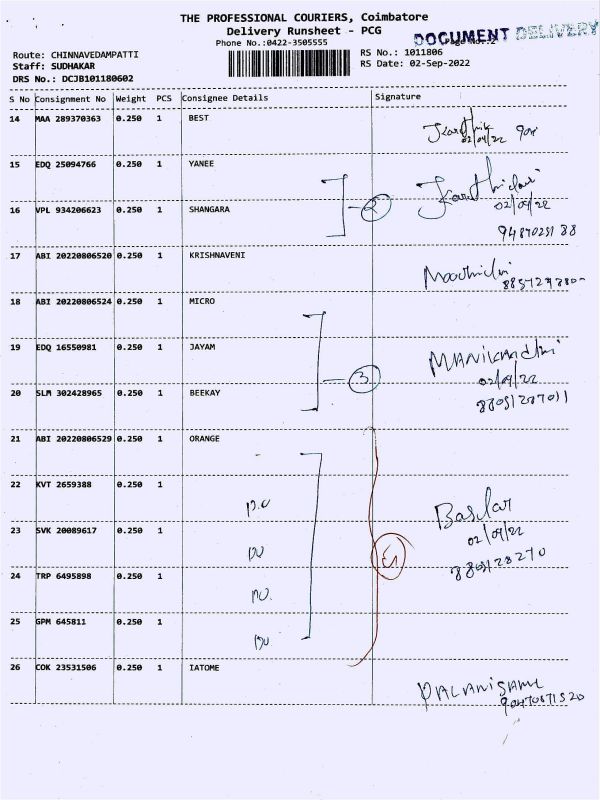 THE PROFESSIONAL COURIERS, Coimbatore
Delivery Runsheet - PCG
DOCUMENT DELIVERY
Phone No.:0422-3505555
Route: CHINNAVEDAMPATTI
RS No.: 1011806
Staff: SUDHAKAR
RS Date: 02-Sep-2022
DRS No.: DCJB101180602
S No Consignment No Weight PCS Consignee Details Signature
14 MAA 289370363 0.250 1 BEST
02/09/22
15 EDQ 25094766 0.250 1 YANEE
2
02/09/22
16 VPL 934206623 0.250 1 SHANGARA
17 ABI 20220806520 0.250 1 KRISHNAVENI
18 ABI 20220806524 0.250 1 MICRO
19 EDQ 16550981 0.250 1 JAYAM
3
02/09/22
20 SLM 302428965 0.250 1 BEEKAY
21 ABI 20220806529 0.250 1 ORANGE
22 KVT 2659388 0.250 1
23 SVK 20089617 0.250 1
02/09/22
24 TRP 6495898 0.250 1
25 GPM 645811 0.250 1
26 COK 23531506 0.250 1 IATOME